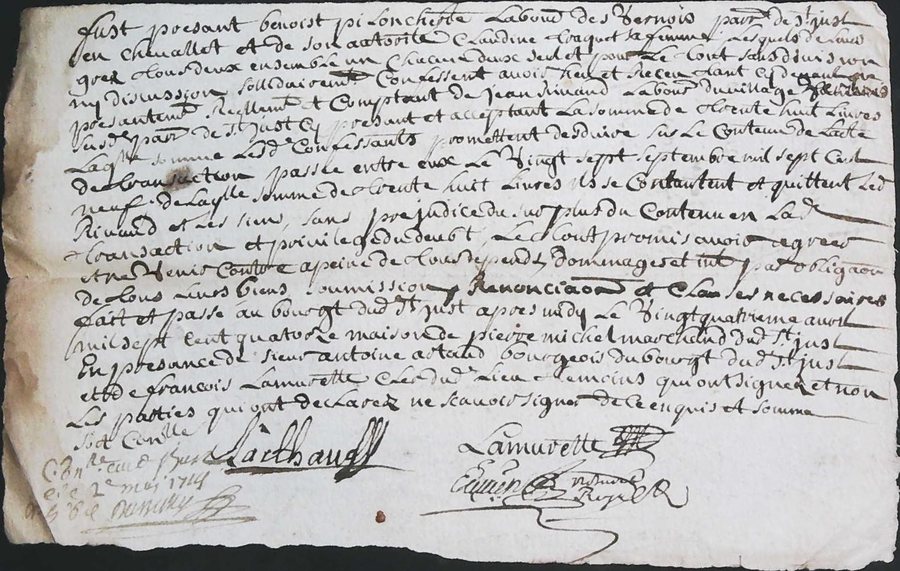 fust presant benoist pilonchette Labour des Vernois parr. de St just
en Chevallet et de son autorite Claudine Coaquet sa femme Lesquels de leurs
grez tous deux ensemble un Chacun deux seul et pour Le tout sans division
ny discussion sollidairement Confessent avoir heu et Receu
presantemt Reellemt et Comptant de Jean Rinaud Labour du village
susd. parr. de St Just Cy presant et acceptant La somme de trente huit Livres
Laqlle somme Lesd. Confessants promettent desduire sur Le Contenu de Lacte
de transaction passée entre eux Le Vingt sept septembre mil sept Cent
neuf. de Laqlle somme de trente huit Livres ils se Contantent et quittent Led.
Rinaud et Les siens, sans prejudice du surplus du Contenu en Lad.
transaction et privilege du deubt, Le tout promis avoir agreer
et ne Venir Contre a peine de tous despends dommages et int. par obligaon
de tous Leurs biens, soumissions Renonciaons et Clauses necessaires
fait et passe au bourgt dud. St just apres midy Le Vingtquatrieme avril
mil sept Cent quatorze maison de pierre michel marchand dud. St just
En presance de sieur antoine artaud bourgeois du bourgt dud. St just
et de francois Lamurette Clerc dud. Lieu temoins qui ont signez et non
Les parties qui ont declarez ne scavoir signer de ce enquis et somme
Lamurette
2e may 1714